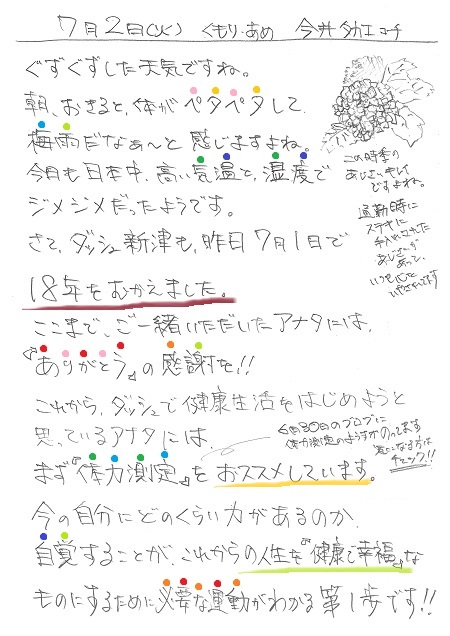 7月2日(火) くもり・あめ 今井タカエコーチ
ぐずぐずした天気ですね。
朝、おきると、体がペタペタして
梅雨だなぁ〜んと 感じますよね。
今日も日本中、高い気温と、湿度で
ジメジメだったようです。
さて、ダッシュ新津も、昨日7月1日で
18年をむかえました。
ここまで、ご一緒いただいたアナタには、
『ありがとう』の感謝を!!
これから、ダッシュで健康生活をはじめようと
思っているアナタには、
まず『体力測定』をおススメしています。
今の自分にどのくらい力があるのか、
自覚することが、これからの人生を『健康で幸福』な
ものにするために必要な運動がわかる第1歩です!!
この時季の
あじさい、キレイ
ですよね。
通勤時に
ステキに
手入れされた
あじさいが
あって、
いつも心を
いやされてます
6月30日のブログに
体力測定のようすがのってます
気になる方は
チェック!!